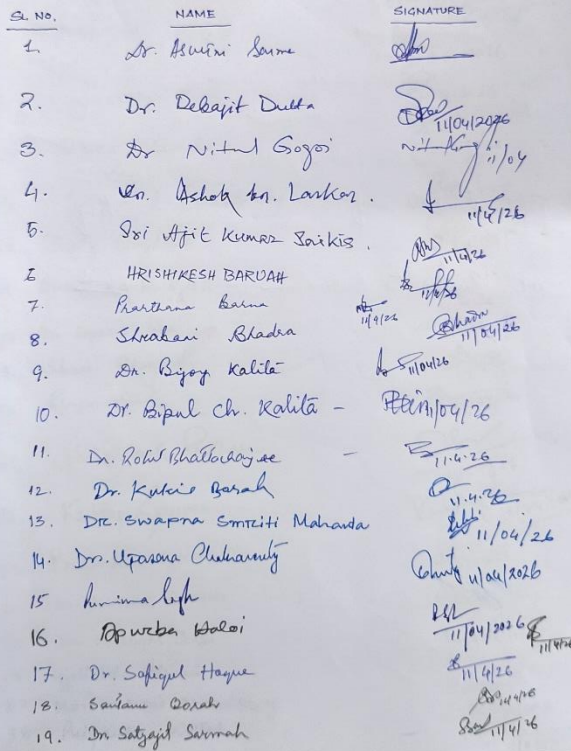 SL. NO. NAME SIGNATURE
1. Dr. Aswini Sarma
2. Dr. Debajit Dutta 11/04/2026
3. Dr Nitul Gogoi 11/04
4. Dr. Ashok kr. Laskar. 11/4/26
5. Sri Ajit Kumar Saikia. 11/4/26
6 HRISHIKESH BARUAH 11/4/26
7. Prarthana Barua 11/4/26
8. Shrabani Bhadra Bhadra 11/04/26
9. Dr. Bijoy Kalita 11/04/26
10. Dr. Bipul Ch. Kalita - 11/04/26
11. Dr. Rohit Bhattacharjee - 11.4.26
12. Dr. Borah 11.4.26
13. DR. Swapna Smriti Mahanta 11/04/26
14. Drs. Upasana Chakravarty 11/04/2026
15 11/04/2026
16. Apurba Haloi 11/4/26
17. Dr. Safiqul Haque 11/4/26
18. Santanu Borah 11/4/26
19. Dr. Satyajit Sarmah 11/4/26